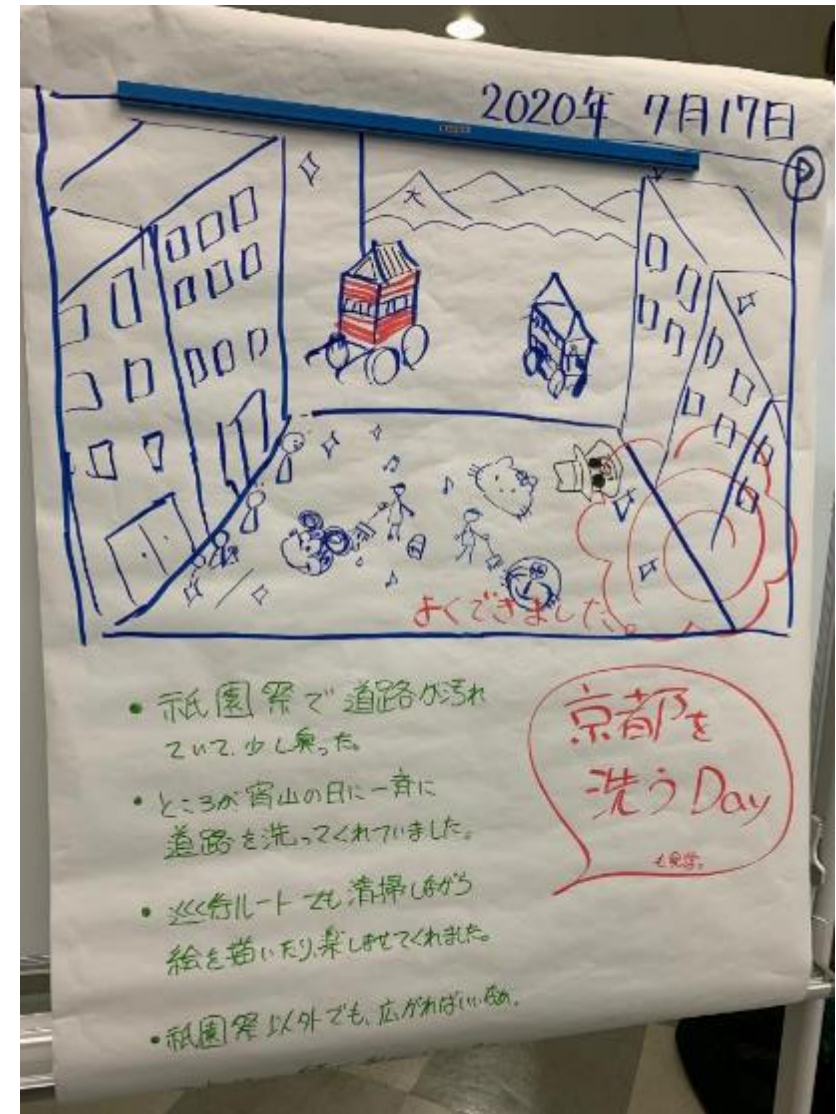 2020年 7月17日
大
よくできました。
・祇園祭で道路が汚れ
ていて、少し臭った。
・ところが宵山の日に一斉に
道路を洗ってくれていました。
・巡行ルートでも清掃しながら
絵を描いたり、楽しませてくれました。
・祇園祭以外でも、広がればいいなぁ。
京都を
洗うDay